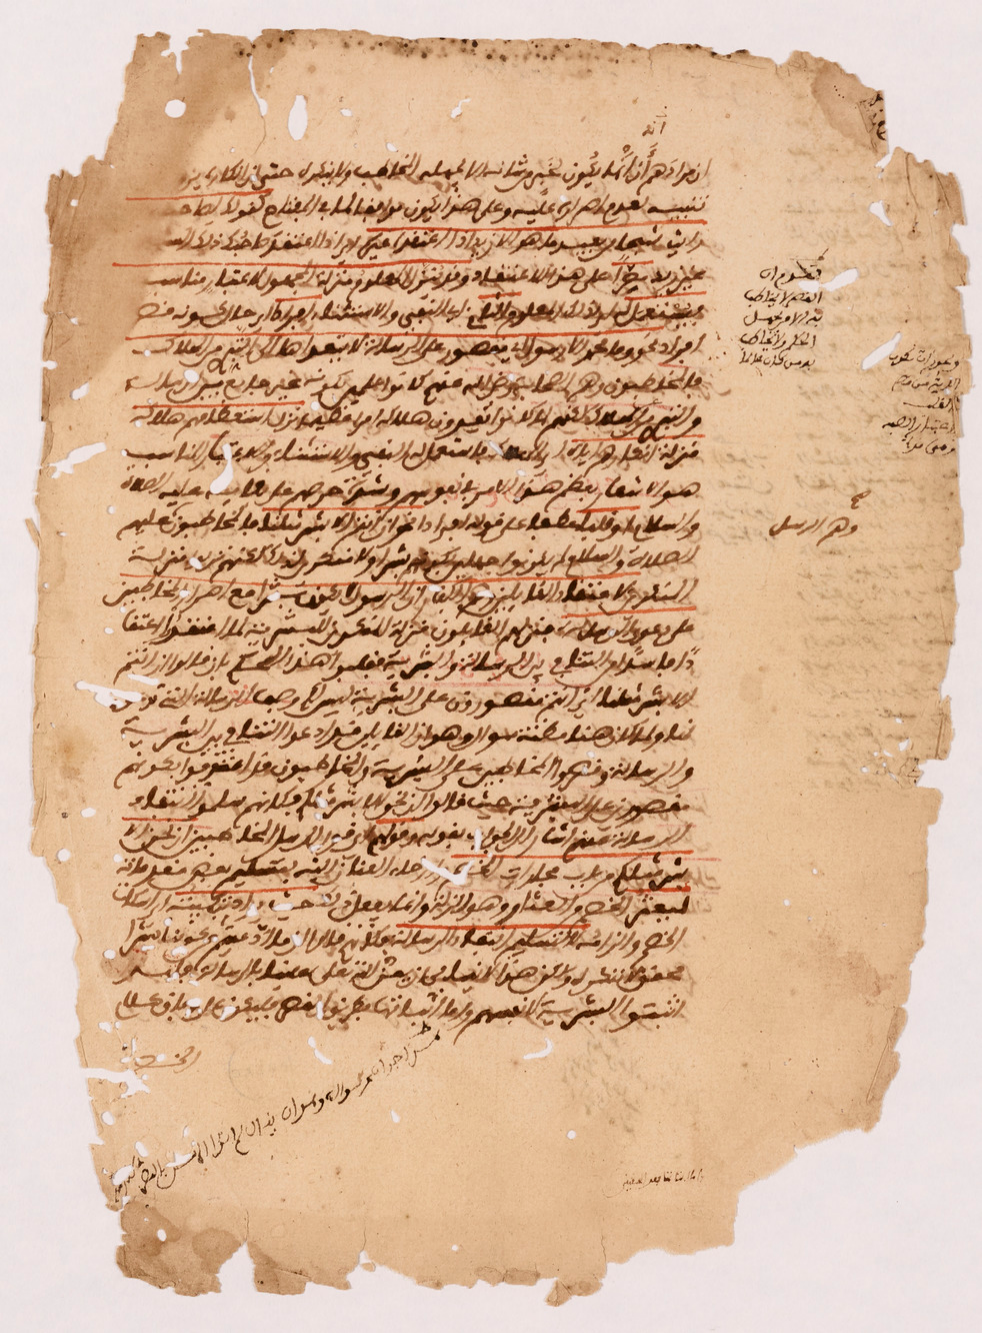 أنه
ان مرادهم أن انما يكون لخبر من شانه ان لا يجهله المخاطب ولا ينكره حتى ان انكاره يزو
تنبيه لعدم اصراره عليه وعلى هذا يكون موافقا لما في المفتاح كقولك لصاحبك
رايت شبحا من بعيد ما هو الا زيد اذا اعتقده غيره اي اذا اعتقد صاحبك ذلك الشبح
غير زيد مصرا على هذا الاعتقاد وقد ينزل المعلوم منزلة المجهول لاعتبار مناسب
فيستعمل له اي لذلك المعلوم الثاني اي النفي والاستثناء افرادا اي حال كونه قصر
افراد نحو وما محمد الا رسول اي مقصور على الرسالة لا يتعداها الى التبري من الهلاك
فالمخاطبون وهم الصحابة رضي الله عنهم كانوا عالمين بكونه غير جامع بين الرسالة
والتبري من الهلاك لكنهم لما كانوا يعدون هلاكه امرا عظيما نزل استعظامهم هلاكه
منزلة انكارهم اياه اي الهلاك فاستعمل له النفي والاستثناء والاعتبار المناسب
هو الاشعار بعظم هذا الامر في نفوسهم وشدة حرصهم على بقائه عليه الصلاة
والسلام او قلبا عطف على قوله افرادا نحو ان انتم الا بشر مثلنا فالمخاطبون عليهم
الصلاة والسلام لم يكونوا جاهلين بكونهم بشرا ولا منكرين لذلك لكنهم نزلوا منزلة
المنكرين لاعتقاد القايلين وهم الكفار ان الرسول لا يكون بشرا مع اصرار المخاطبين
على دعوى الرسالة فنزلهم القايلون منزلة المنكرين للبشرية لما اعتقدوا اعتقا
دا فاسدا من التنافي بين الرسالة والبشرية فقلبوا هذا الحكم بان قالوا ان انتم
الا بشر مثلنا اي انتم مقصورون على البشرية ليس لكم وصف الرسالة التي تدعو
نها ولما كان هنا مظنة سوال وهو ان القايلين قد ادعوا التنافي بين البشرية
والرسالة وقصروا المخاطبين على البشرية والمخاطبون قد اعترفوا بكونهم
مقصورين على البشرية حيث قالوا ان نحن الا بشر مثلكم فكانهم سلموا انتفاء
الرسالة عنهم اشار الى جوابه بقوله وقولهم اي قول الرسل المخاطبين ان نحن الا
بشر مثلكم من باب مجاراة الخصم وارخاء العنان اليه بتسليم بعض مقدماته
ليعثر الخصم من العثار وهو الزلة وانما يفعل ذلك حيث يراد تبكيته اي اسكات
الخصم والزامه لا لتسليم انتفاء الرسالة فكانهم قالوا ان ما ادعيتم من كوننا بشرا
فحق لا ننكره ولكن هذا لا ينافي ان يمن الله تعالى علينا بالرسالة فلهذا
اثبتوا البشرية لانفسهم واما اثباتها بطريق القصر فليكون على وفق كلام
الخصم
وهم الرسل